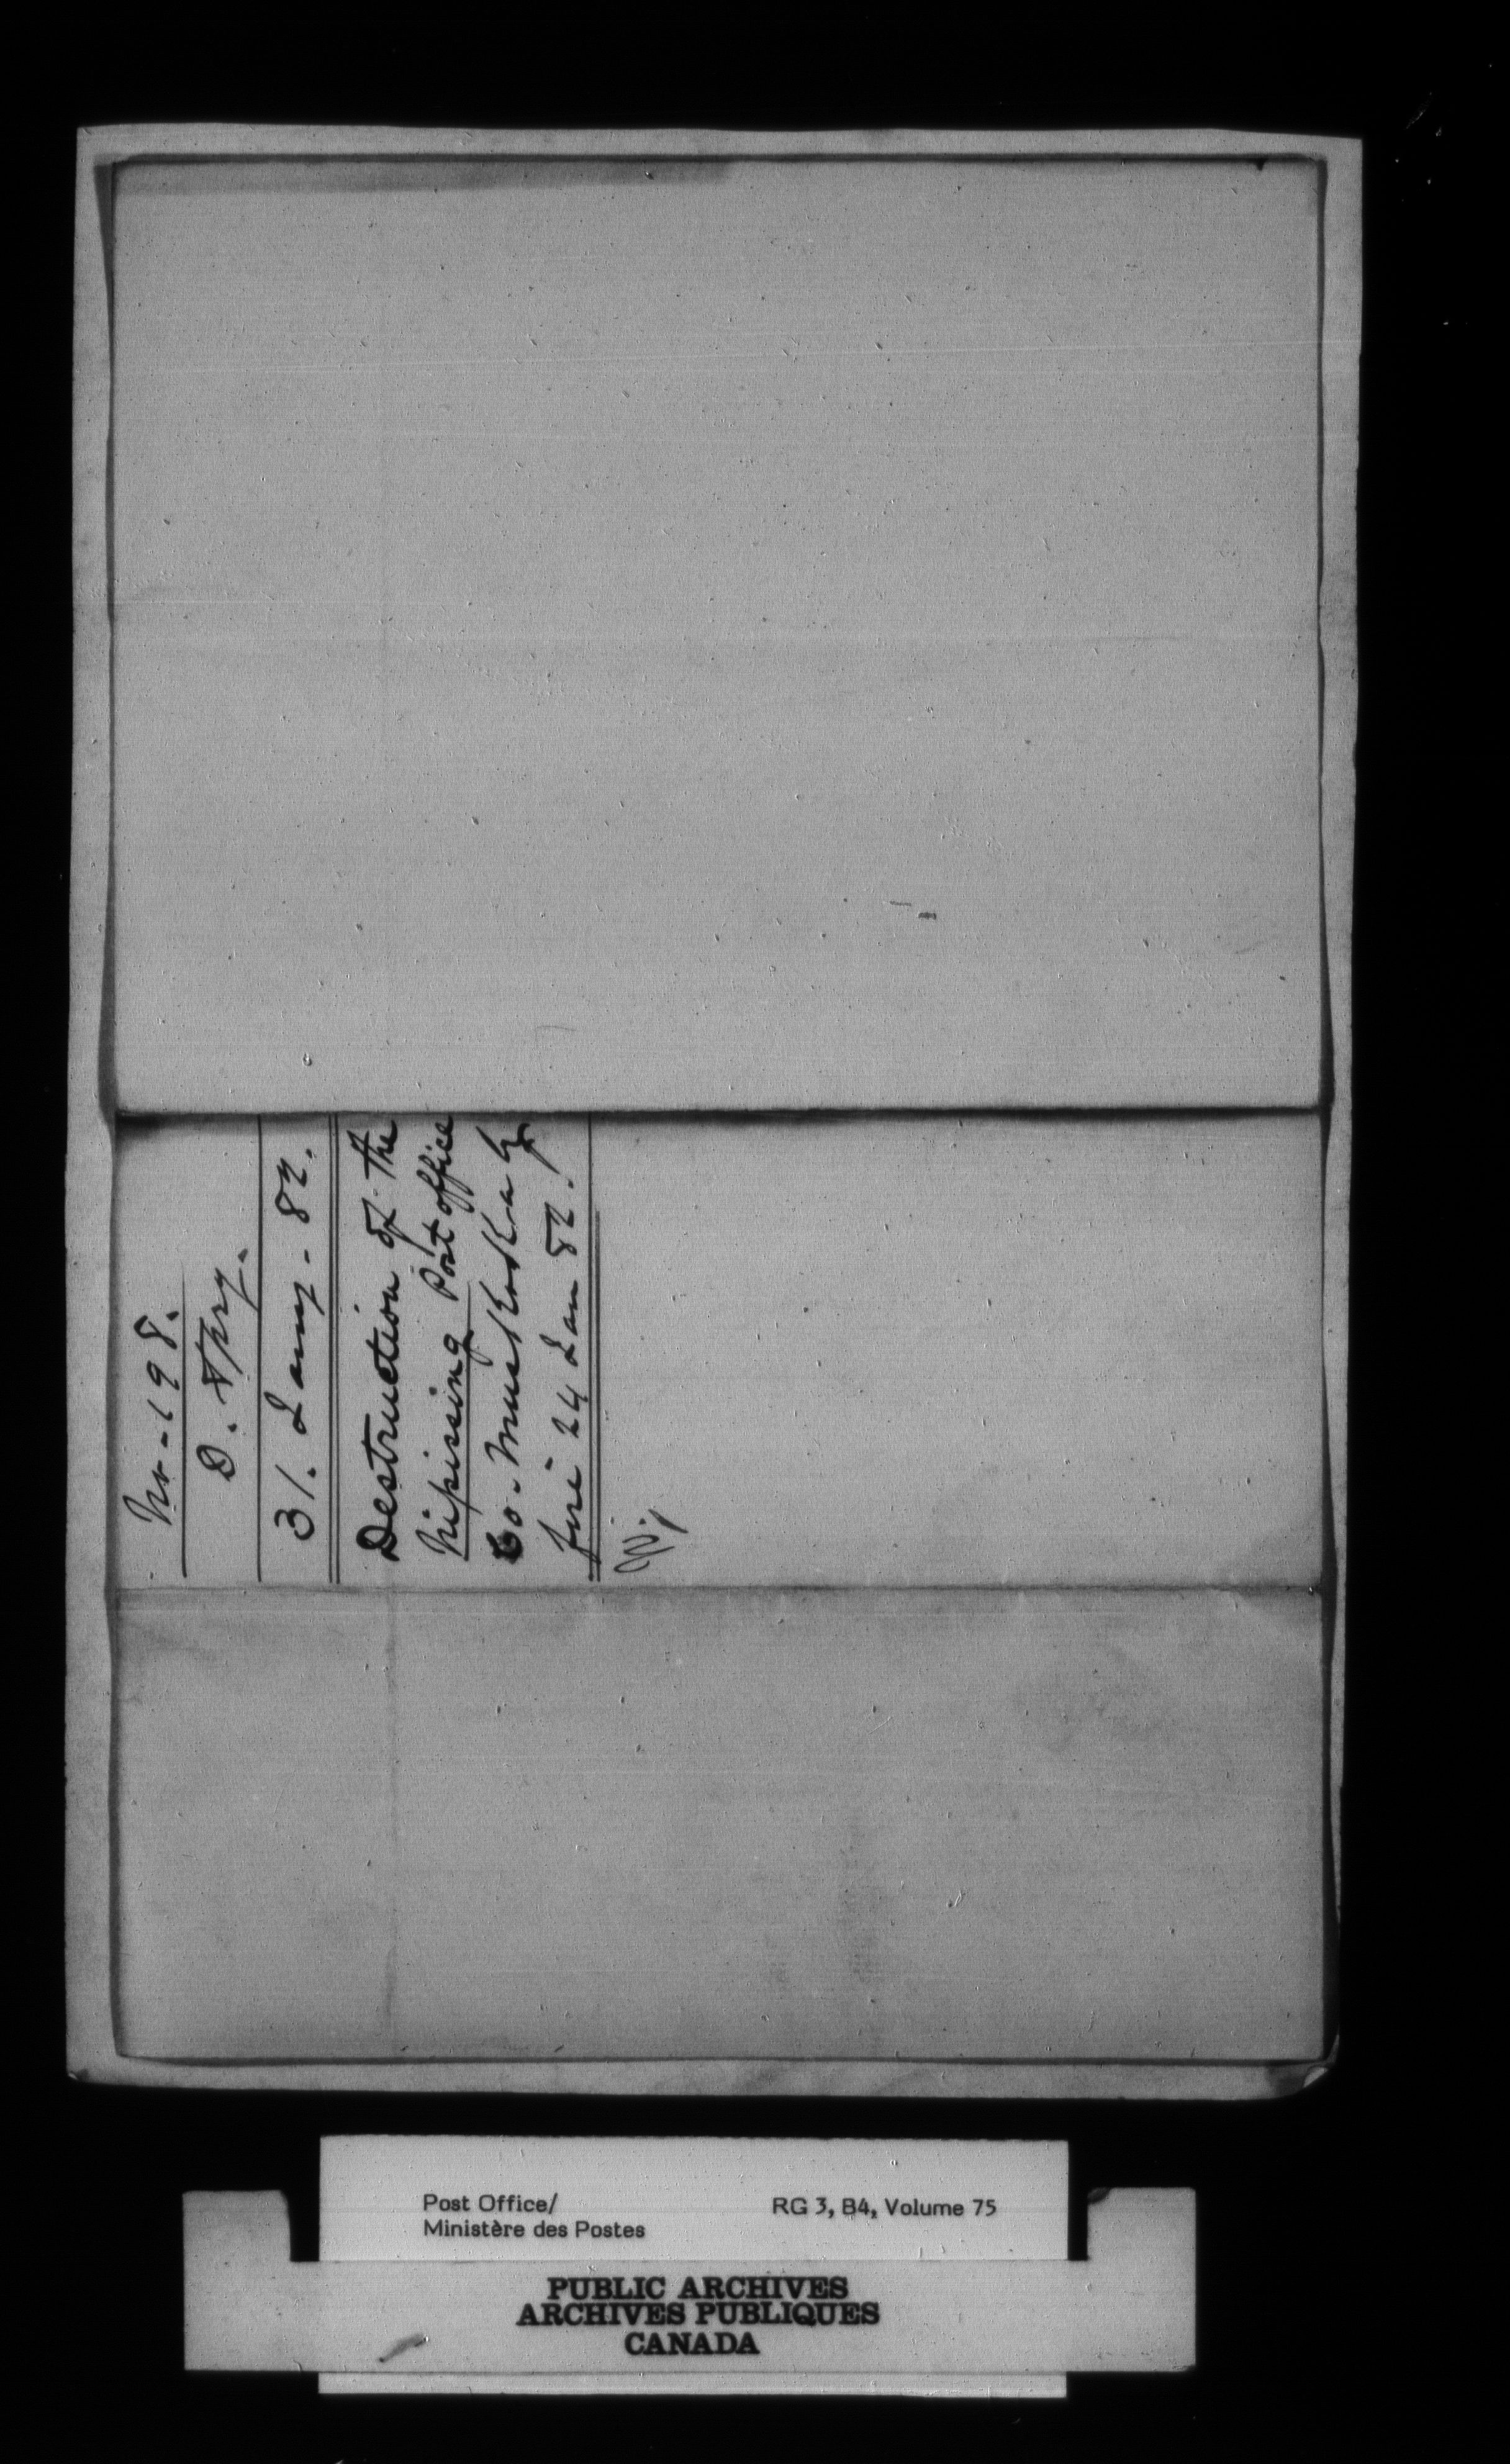 No - 198.
D.
31. Jany - 82.
Destruction of the
Nipissing Post office
Co. Muskoka by
fire 24 Jan 82.
Post Office/
Ministère des Postes
RG 3, B4, Volume 75
PUBLIC ARCHIVES
ARCHIVES PUBLIQUES
CANADA